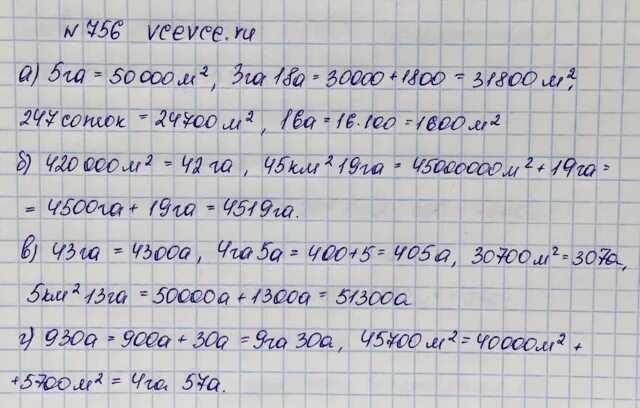 № 756 vcevce.ru
а) 5га = 50000м², 3га 18а = 30000 + 1800 = 31800м²,
247 соток = 24700м², 16а = 16·100 = 1600м²
б) 420 000м² = 42 га, 45км² 19га = 45000000м² + 19га =
= 4500га + 19га = 4519га.
в) 43га = 4300а, 4га 5а = 400+5 = 405а, 30700м² = 307а,
5км² 13га = 50000а + 1300а = 51300а
г) 930а = 900а + 30а = 9га 30а, 45700м² = 40000м² +
+5700м² = 4га 57а.